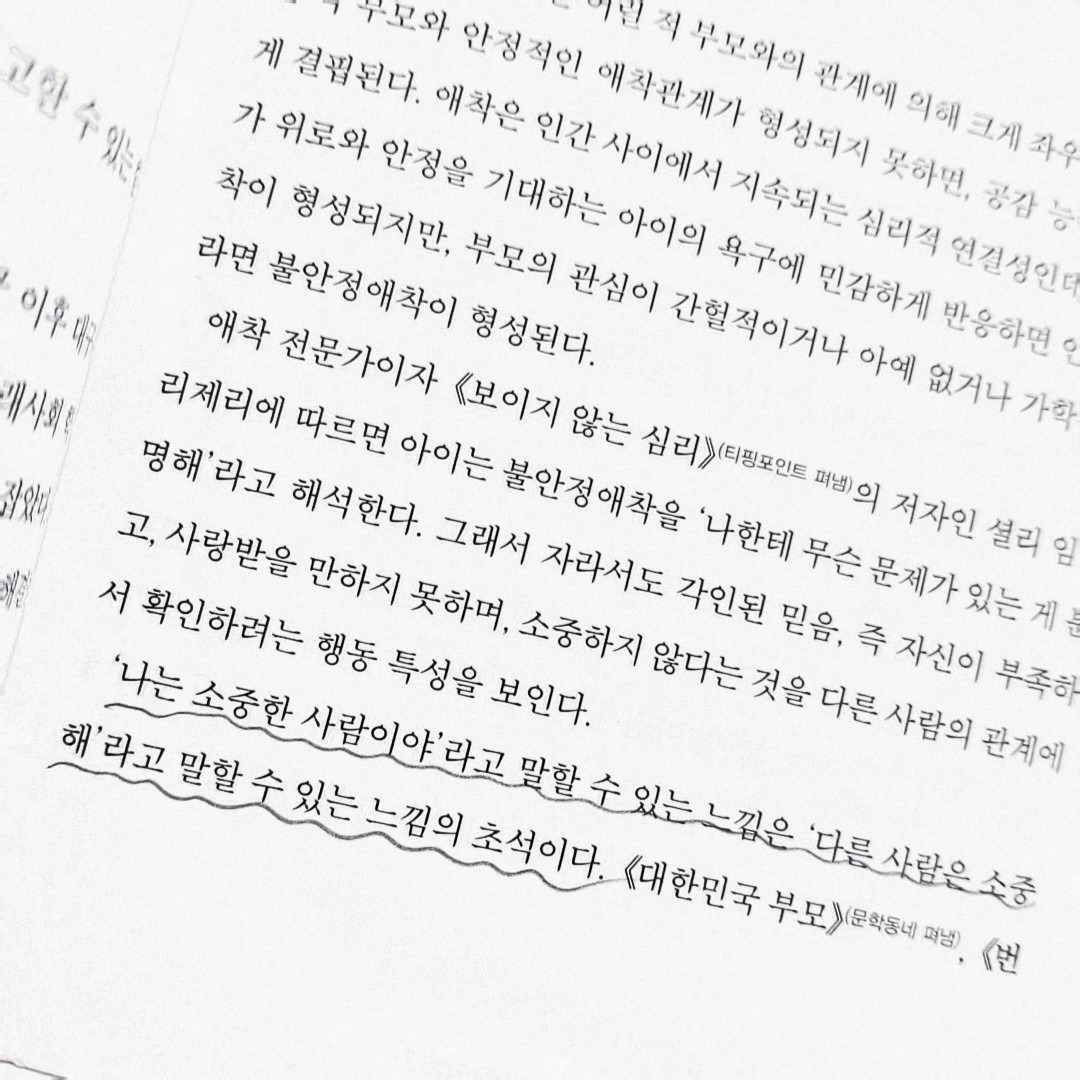 고한 수 있는
이후 대구
래사회
잡았다
어릴 적 부모와의 관계에 의해 크게 좌우
부모와 안정적인 애착관계가 형성되지 못하면, 공감 능
게 결핍된다. 애착은 인간 사이에서 지속되는 심리적 연결성인데
가 위로와 안정을 기대하는 아이의 욕구에 민감하게 반응하면 안
착이 형성되지만, 부모의 관심이 간헐적이거나 아예 없거나 가학
라면 불안정애착이 형성된다.
애착 전문가이자 《보이지 않는 심리》(티핑포인트 펴냄)의 저자인 셜리 임
리제리에 따르면 아이는 불안정애착을 ‘나한테 무슨 문제가 있는 게 분
명해’라고 해석한다. 그래서 자라서도 각인된 믿음, 즉 자신이 부족하
고, 사랑받을 만하지 못하며, 소중하지 않다는 것을 다른 사람의 관계에
서 확인하려는 행동 특성을 보인다.
‘나는 소중한 사람이야’라고 말할 수 있는 느낌은 ‘다른 사람은 소중
해’라고 말할 수 있는 느낌의 초석이다. 《대한민국 부모》(문학동네 펴냄), 《번